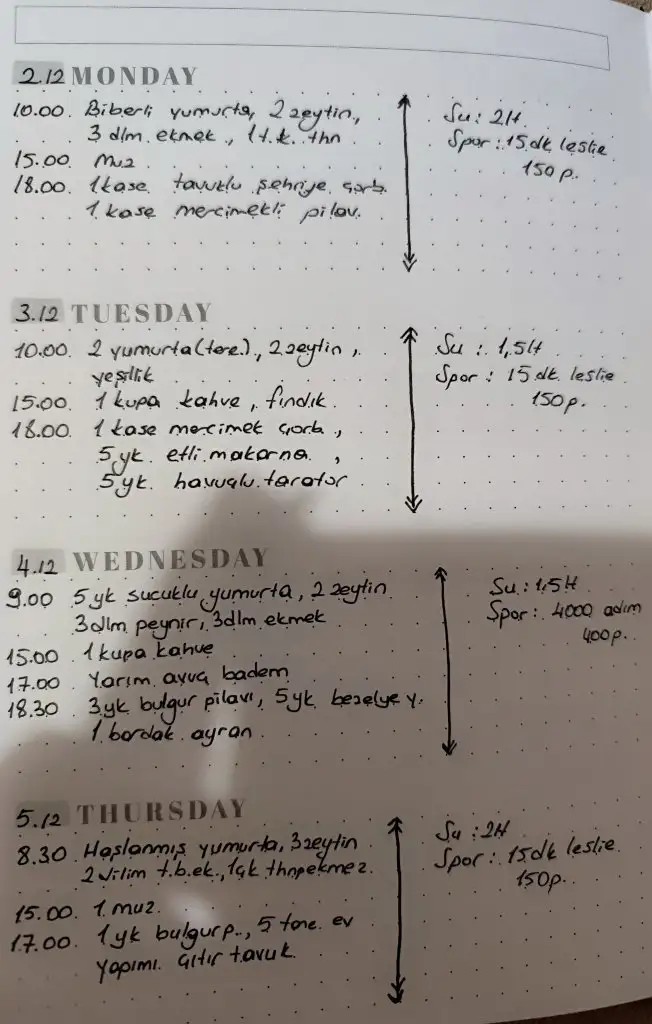 2.12 MONDAY
10.00. Biberli yumurta, 2 zeytin,
3 dlm. ekmek, 1 t.k. thn
15.00. muz
18.00. 1 kase tavuklu şehriye çorb.
1 kase mercimekli pilav.
Su: 2lt.
Spor: 15 dk leslie
150 p.
3.12 TUESDAY
10.00. 2 yumurta (tere.), 2 zeytin,
yeşillik
15.00. 1 kupa kahve, fındık.
18.00. 1 kase mercimek çorb,
5 yk. etli makarna,
5 yk. havuçlu tarator
Su: 1,5lt
Spor: 15 dk. leslie
150 p.
4.12 WEDNESDAY
9.00 5 yk sucuklu yumurta, 2 zeytin
3 dlm peynir, 3 dlm ekmek
15.00 1 kupa kahve
17.00 Yarım ayva badem
18.30 3 yk bulgur pilavı, 5 yk bezelye y.
1 bardak ayran
Su: 1,5lt
Spor: 4000 adım
400 p.
5.12 THURSDAY
8.30 Haşlanmış yumurta, 3 zeytin
2 dilim t.b.ek., 1çk thnpekmez.
15.00. 1 muz.
17.00. 1 yk bulgur p., 5 tane ev
yapımı çıtır tavuk
Su: 2lt
Spor: 15 dk leslie.
150 p.